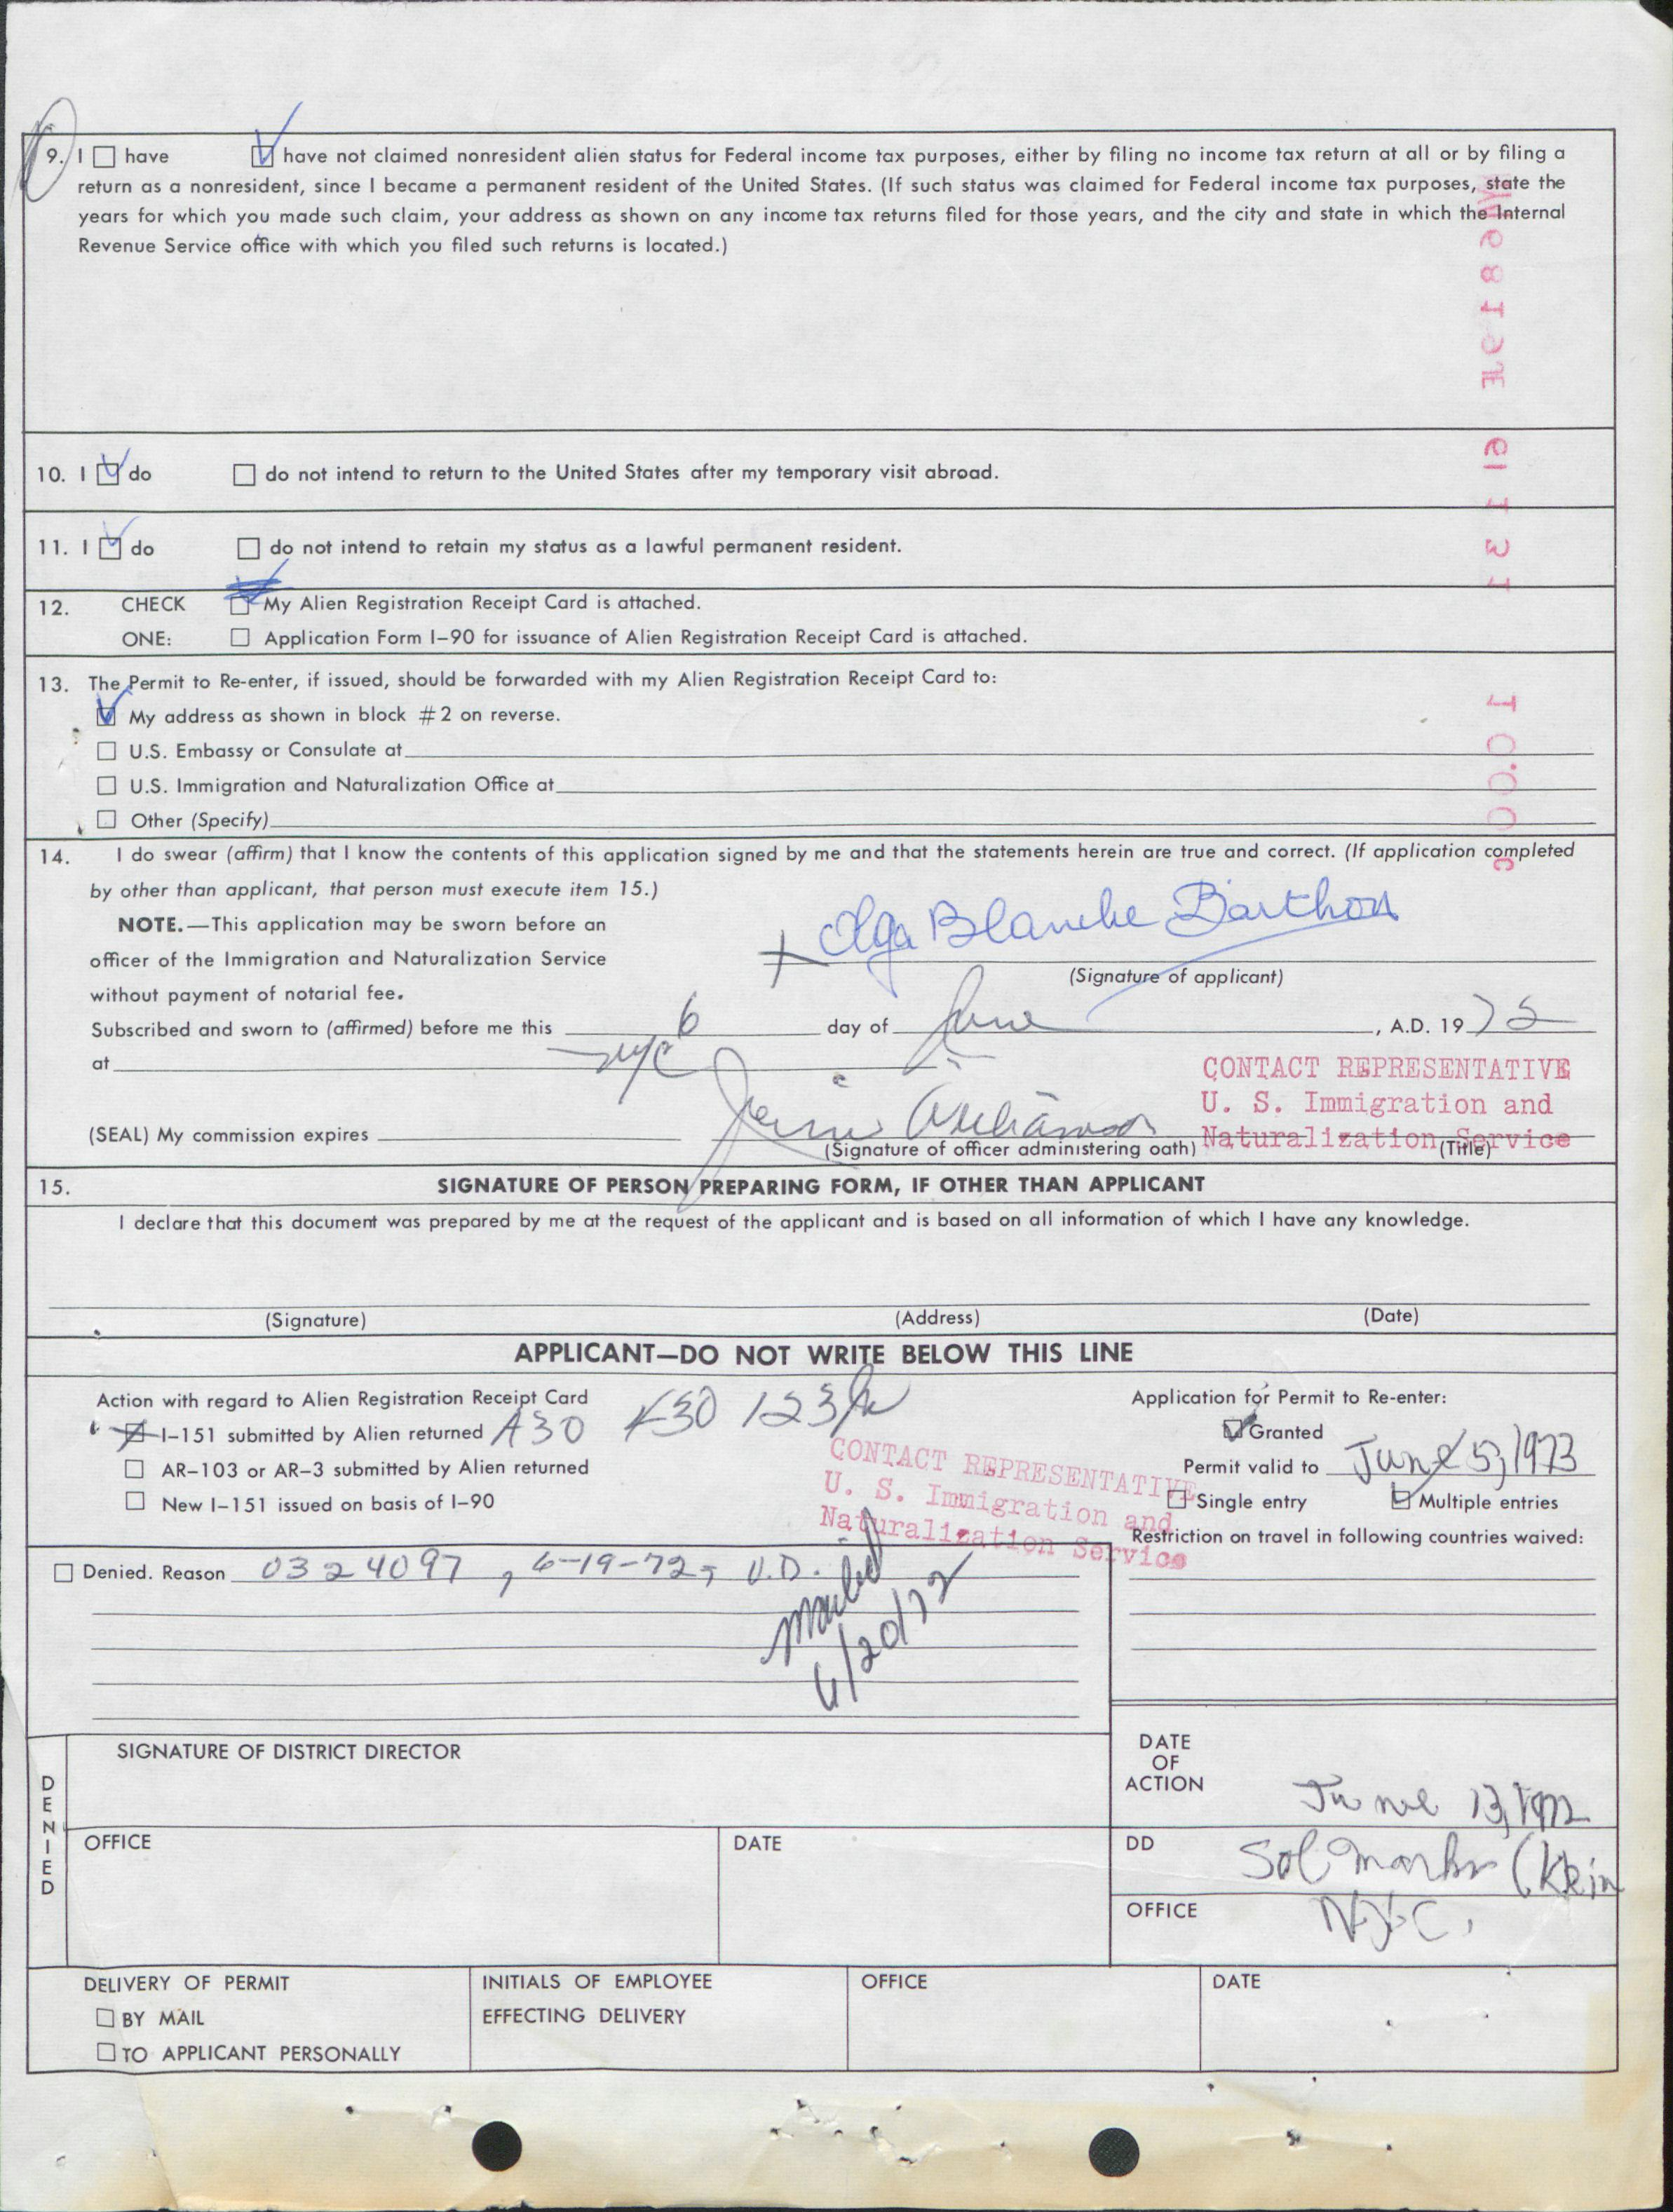 9. I ☐ have ☑ have not claimed nonresident alien status for Federal income tax purposes, either by filing no income tax return at all or by filing a
return as a nonresident, since I became a permanent resident of the United States. (If such status was claimed for Federal income tax purposes, state the
years for which you made such claim, your address as shown on any income tax returns filed for those years, and the city and state in which the Internal
Revenue Service office with which you filed such returns is located.)
10. I ☑ do ☐ do not intend to return to the United States after my temporary visit abroad.
11. I ☑ do ☐ do not intend to retain my status as a lawful permanent resident.
12. CHECK ☑ My Alien Registration Receipt Card is attached.
ONE: ☐ Application Form I-90 for issuance of Alien Registration Receipt Card is attached.
13. The Permit to Re-enter, if issued, should be forwarded with my Alien Registration Receipt Card to:
☑ My address as shown in block #2 on reverse.
☐ U.S. Embassy or Consulate at
☐ U.S. Immigration and Naturalization Office at
☐ Other (Specify)
14. I do swear (affirm) that I know the contents of this application signed by me and that the statements herein are true and correct. (If application completed
by other than applicant, that person must execute item 15.)
NOTE.—This application may be sworn before an
officer of the Immigration and Naturalization Service
without payment of notarial fee.
Olga Blanche Barthon
(Signature of applicant)
Subscribed and sworn to (affirmed) before me this 6 day of June, A.D. 1972
at NYC
CONTACT REPRESENTATIVE
U. S. Immigration and
Naturalization Service
(SEAL) My commission expires
(Signature of officer administering oath) (Title)
15. SIGNATURE OF PERSON PREPARING FORM, IF OTHER THAN APPLICANT
I declare that this document was prepared by me at the request of the applicant and is based on all information of which I have any knowledge.
(Signature) (Address) (Date)
APPLICANT—DO NOT WRITE BELOW THIS LINE
Action with regard to Alien Registration Receipt Card
☑ I-151 submitted by Alien returned A30
☐ AR-103 or AR-3 submitted by Alien returned
☐ New I-151 issued on basis of I-90
CONTACT REPRESENTATIVE
U. S. Immigration and
Naturalization Service
Application for Permit to Re-enter:
☑ Granted
Permit valid to June 5, 1973
☐ Single entry ☑ Multiple entries
Restriction on travel in following countries waived:
☐ Denied. Reason 0324097, 6-19-72, V.D.
mailed
6/20/72
DENIED
SIGNATURE OF DISTRICT DIRECTOR
OFFICE DATE
DATE
OF
ACTION June 13, 1972
DD Sol Marks (Klein
OFFICE NYC.
DELIVERY OF PERMIT
☐ BY MAIL
☐ TO APPLICANT PERSONALLY
INITIALS OF EMPLOYEE
EFFECTING DELIVERY
OFFICE
DATE